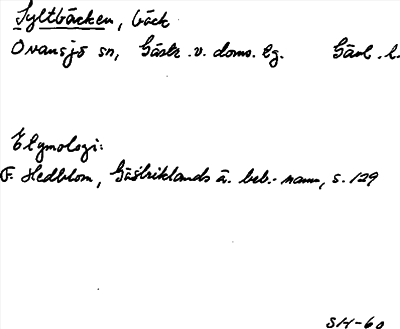 Syltbäcken, bäck
Ovansjö sn, Gästr. v. doms. tg. Gävl. l.
Etymologi:
F. Hedblom, Gästriklands ä. beb.-namn, s. 129
SH-60